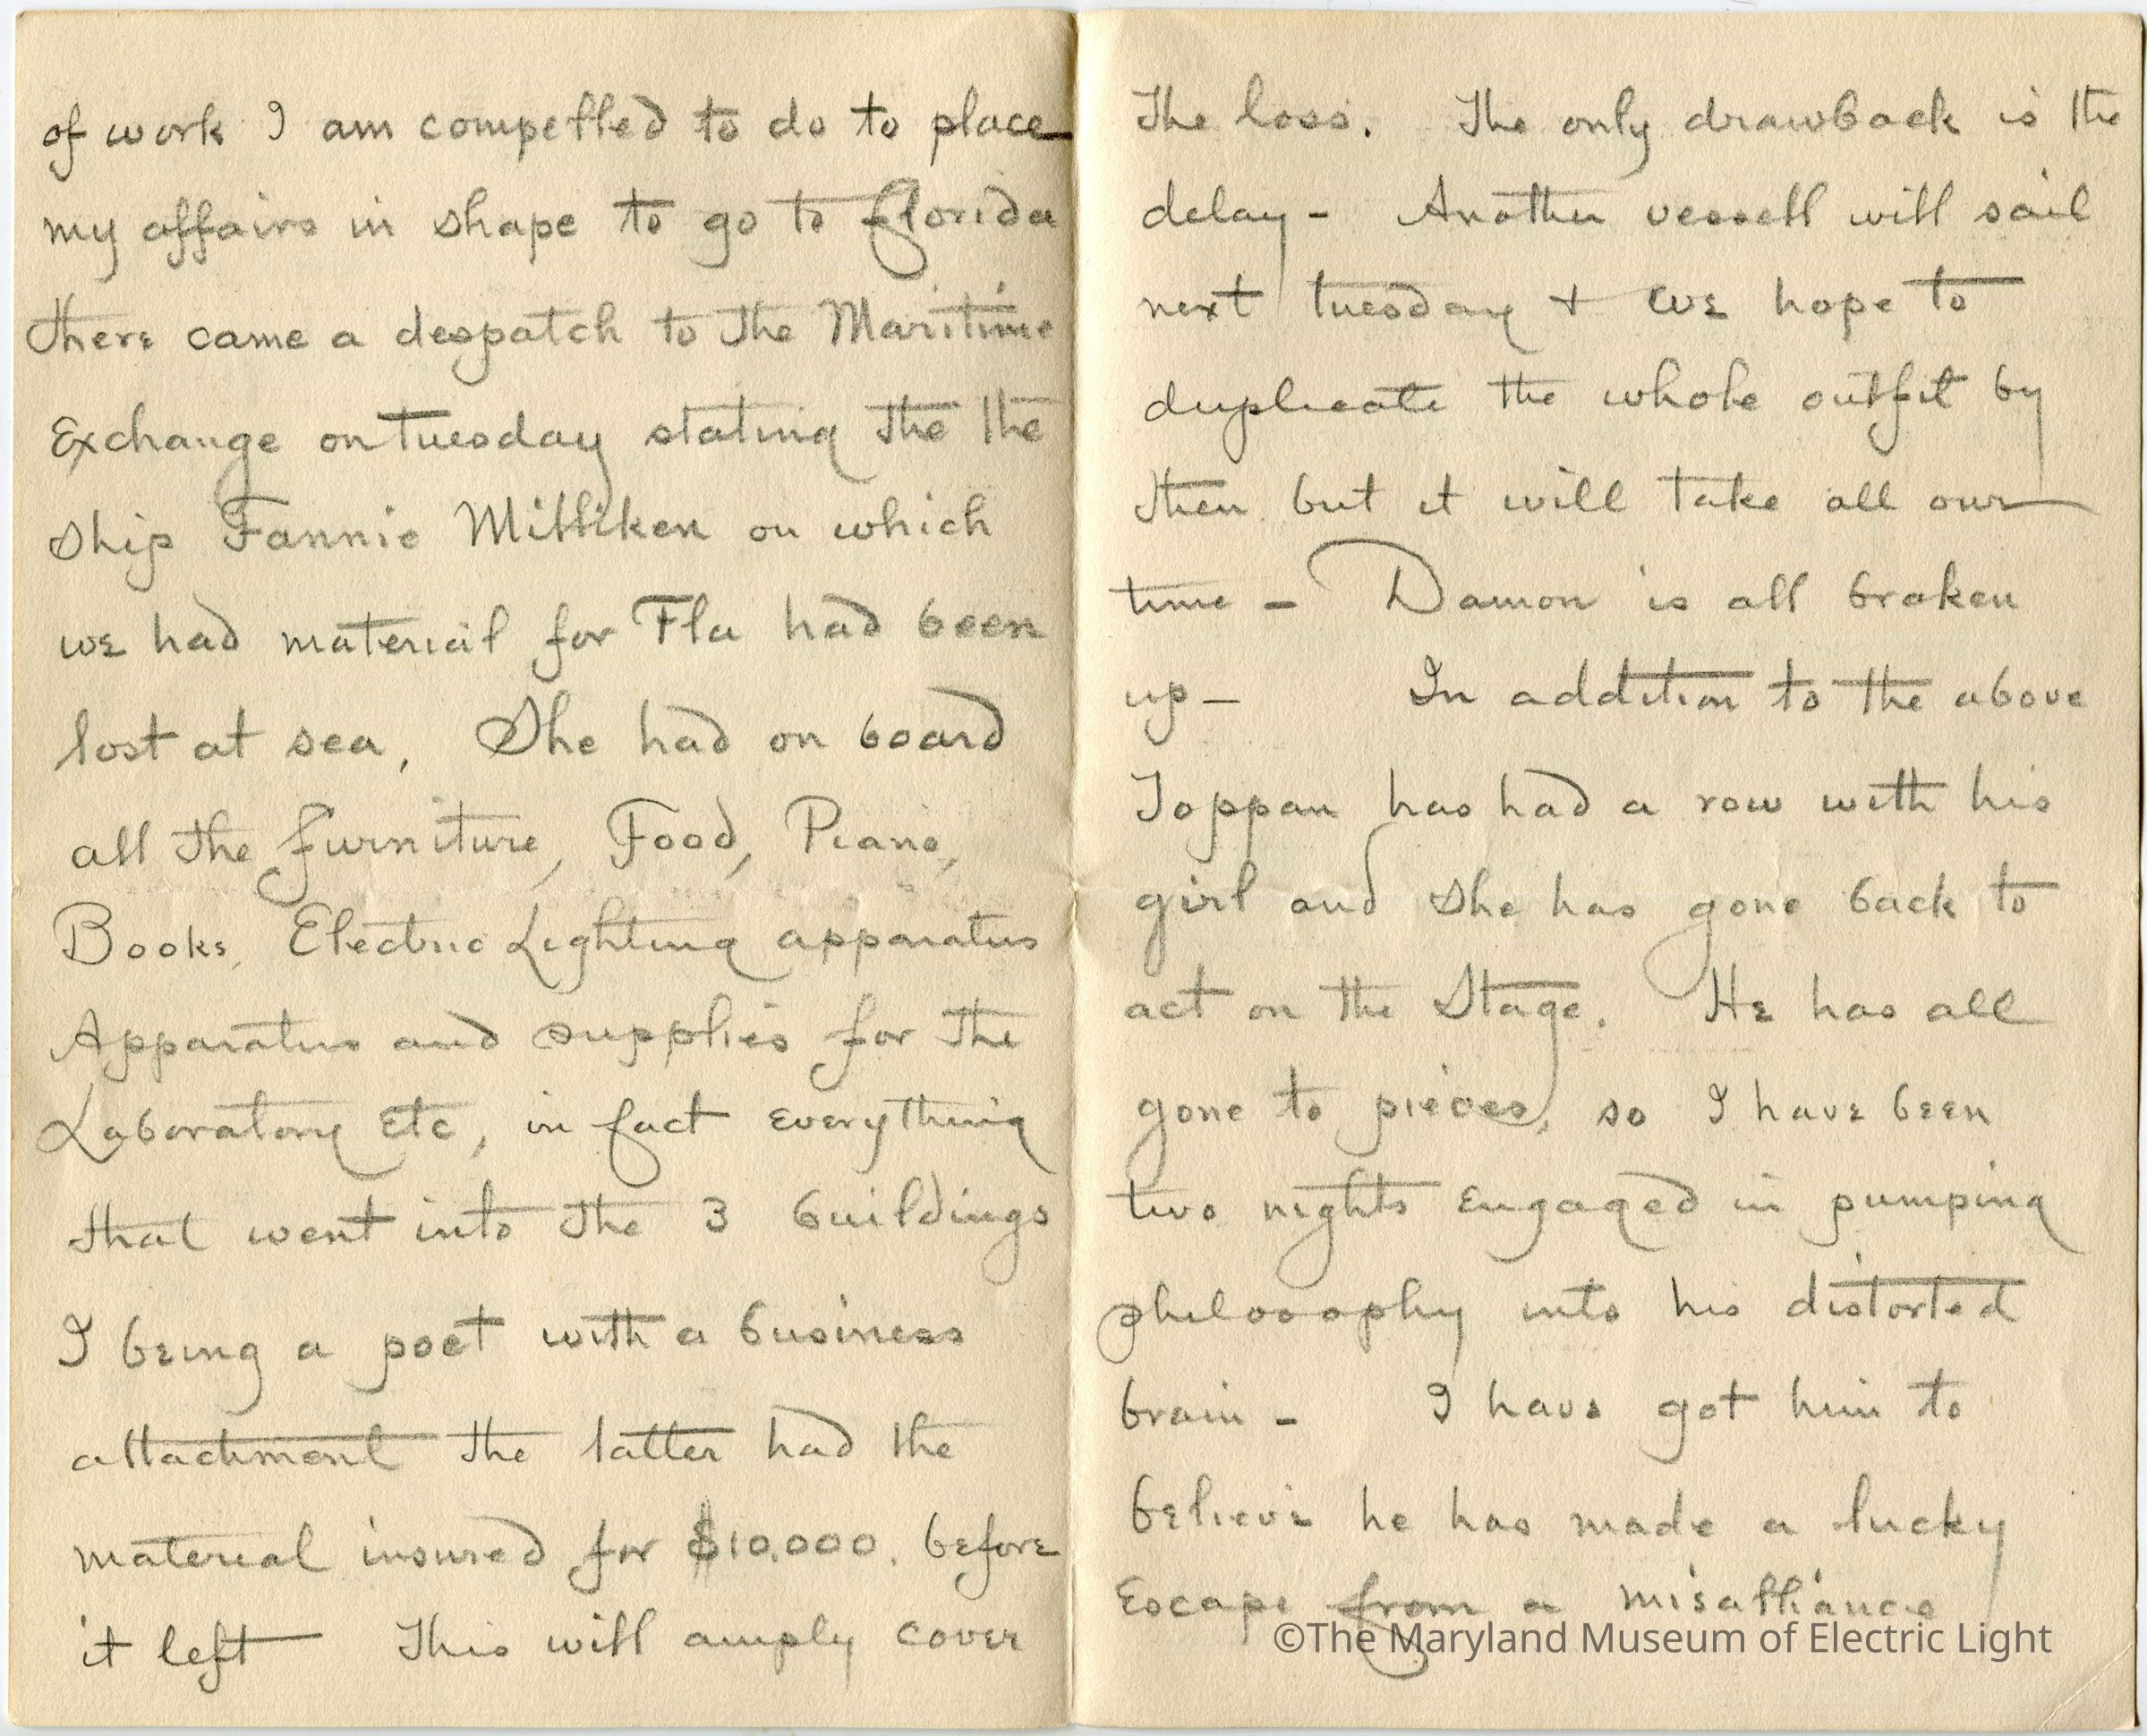 of work I am compelled to do to place
my affairs in shape to go to Florida
there came a despatch to the Maritime
Exchange on tuesday stating the the
ship Fannie Milliken on which
we had material for Fla had been
lost at sea, She had on board
all the furniture, Food, Piano,
Books, Electric Lighting apparatus
Apparatus and supplies for the
Laboratory Etc, in fact everything
that went into the 3 buildings
I being a poet with a business
attachment the latter had the
material insured for $10,000. before
it left This will amply cover
The loss. The only drawback is the
delay - Another vessell will sail
next tuesday & we hope to
duplicate the whole outfit by
then but it will take all our
time - Damon is all broken
up - In addition to the above
Toppan has had a row with his
girl and she has gone back to
act on the Stage. He has all
gone to pieces, so I have been
two nights engaged in pumping
philosophy into his distorted
brain - I have got him to
believe he has made a lucky
Escape from a misalliance
©The Maryland Museum of Electric Light